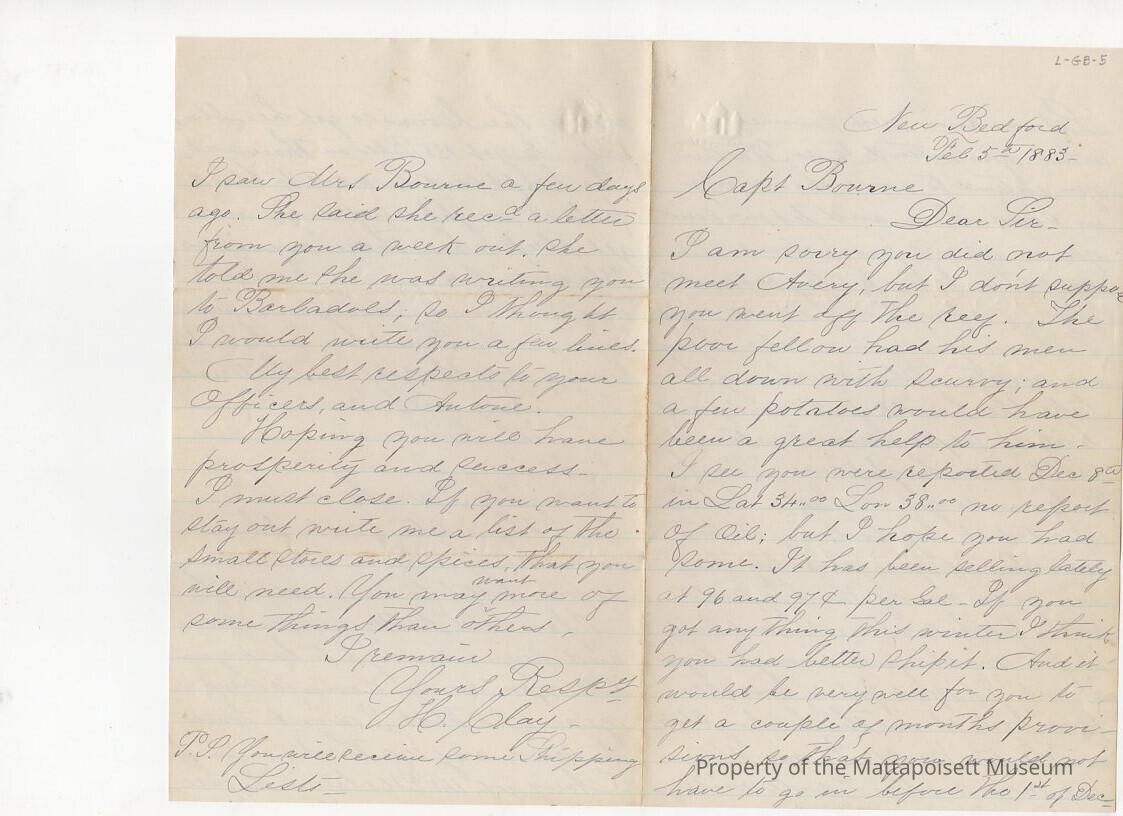 L-GB-5
New Bedford
Feb 5th 1883-
Capt Bourne
Dear Sir-
I am sorry you did not
meet Avery, but I don't suppose
you went off the reg. The
poor fellow had his men
all down with scurvy; and
a few potatoes would have
been a great help to him-
I see you were reported Dec 8th
in Lat 34..00 Lon 38..00 no report
of Oil; but I hope you had
some. It has been selling lately
at 96 and 97¢ per Gal- If you
got any thing this winter I think
you had better ship it. And it
would be very well for you to
get a couple of months provi-
sions so that you would not
have to go in before the 1st of Dec-
I saw Mrs Bourne a few days
ago. She said she recd a letter
from you a week out. She
told me she was writing you
to Barbadoes; so I thought
I would write you a few lines.
My best respects to your
Officers, and Antone.
Hoping you will have
prosperity and success-
I must close. If you want to
stay out write me a list of the
small stores and spices, that you
will need. You may want more of
some things than others,
I remain
Yours Respy
H. Clay-
P.S. You will receive some Shipping
Lists-
Property of the Mattapoisett Museum